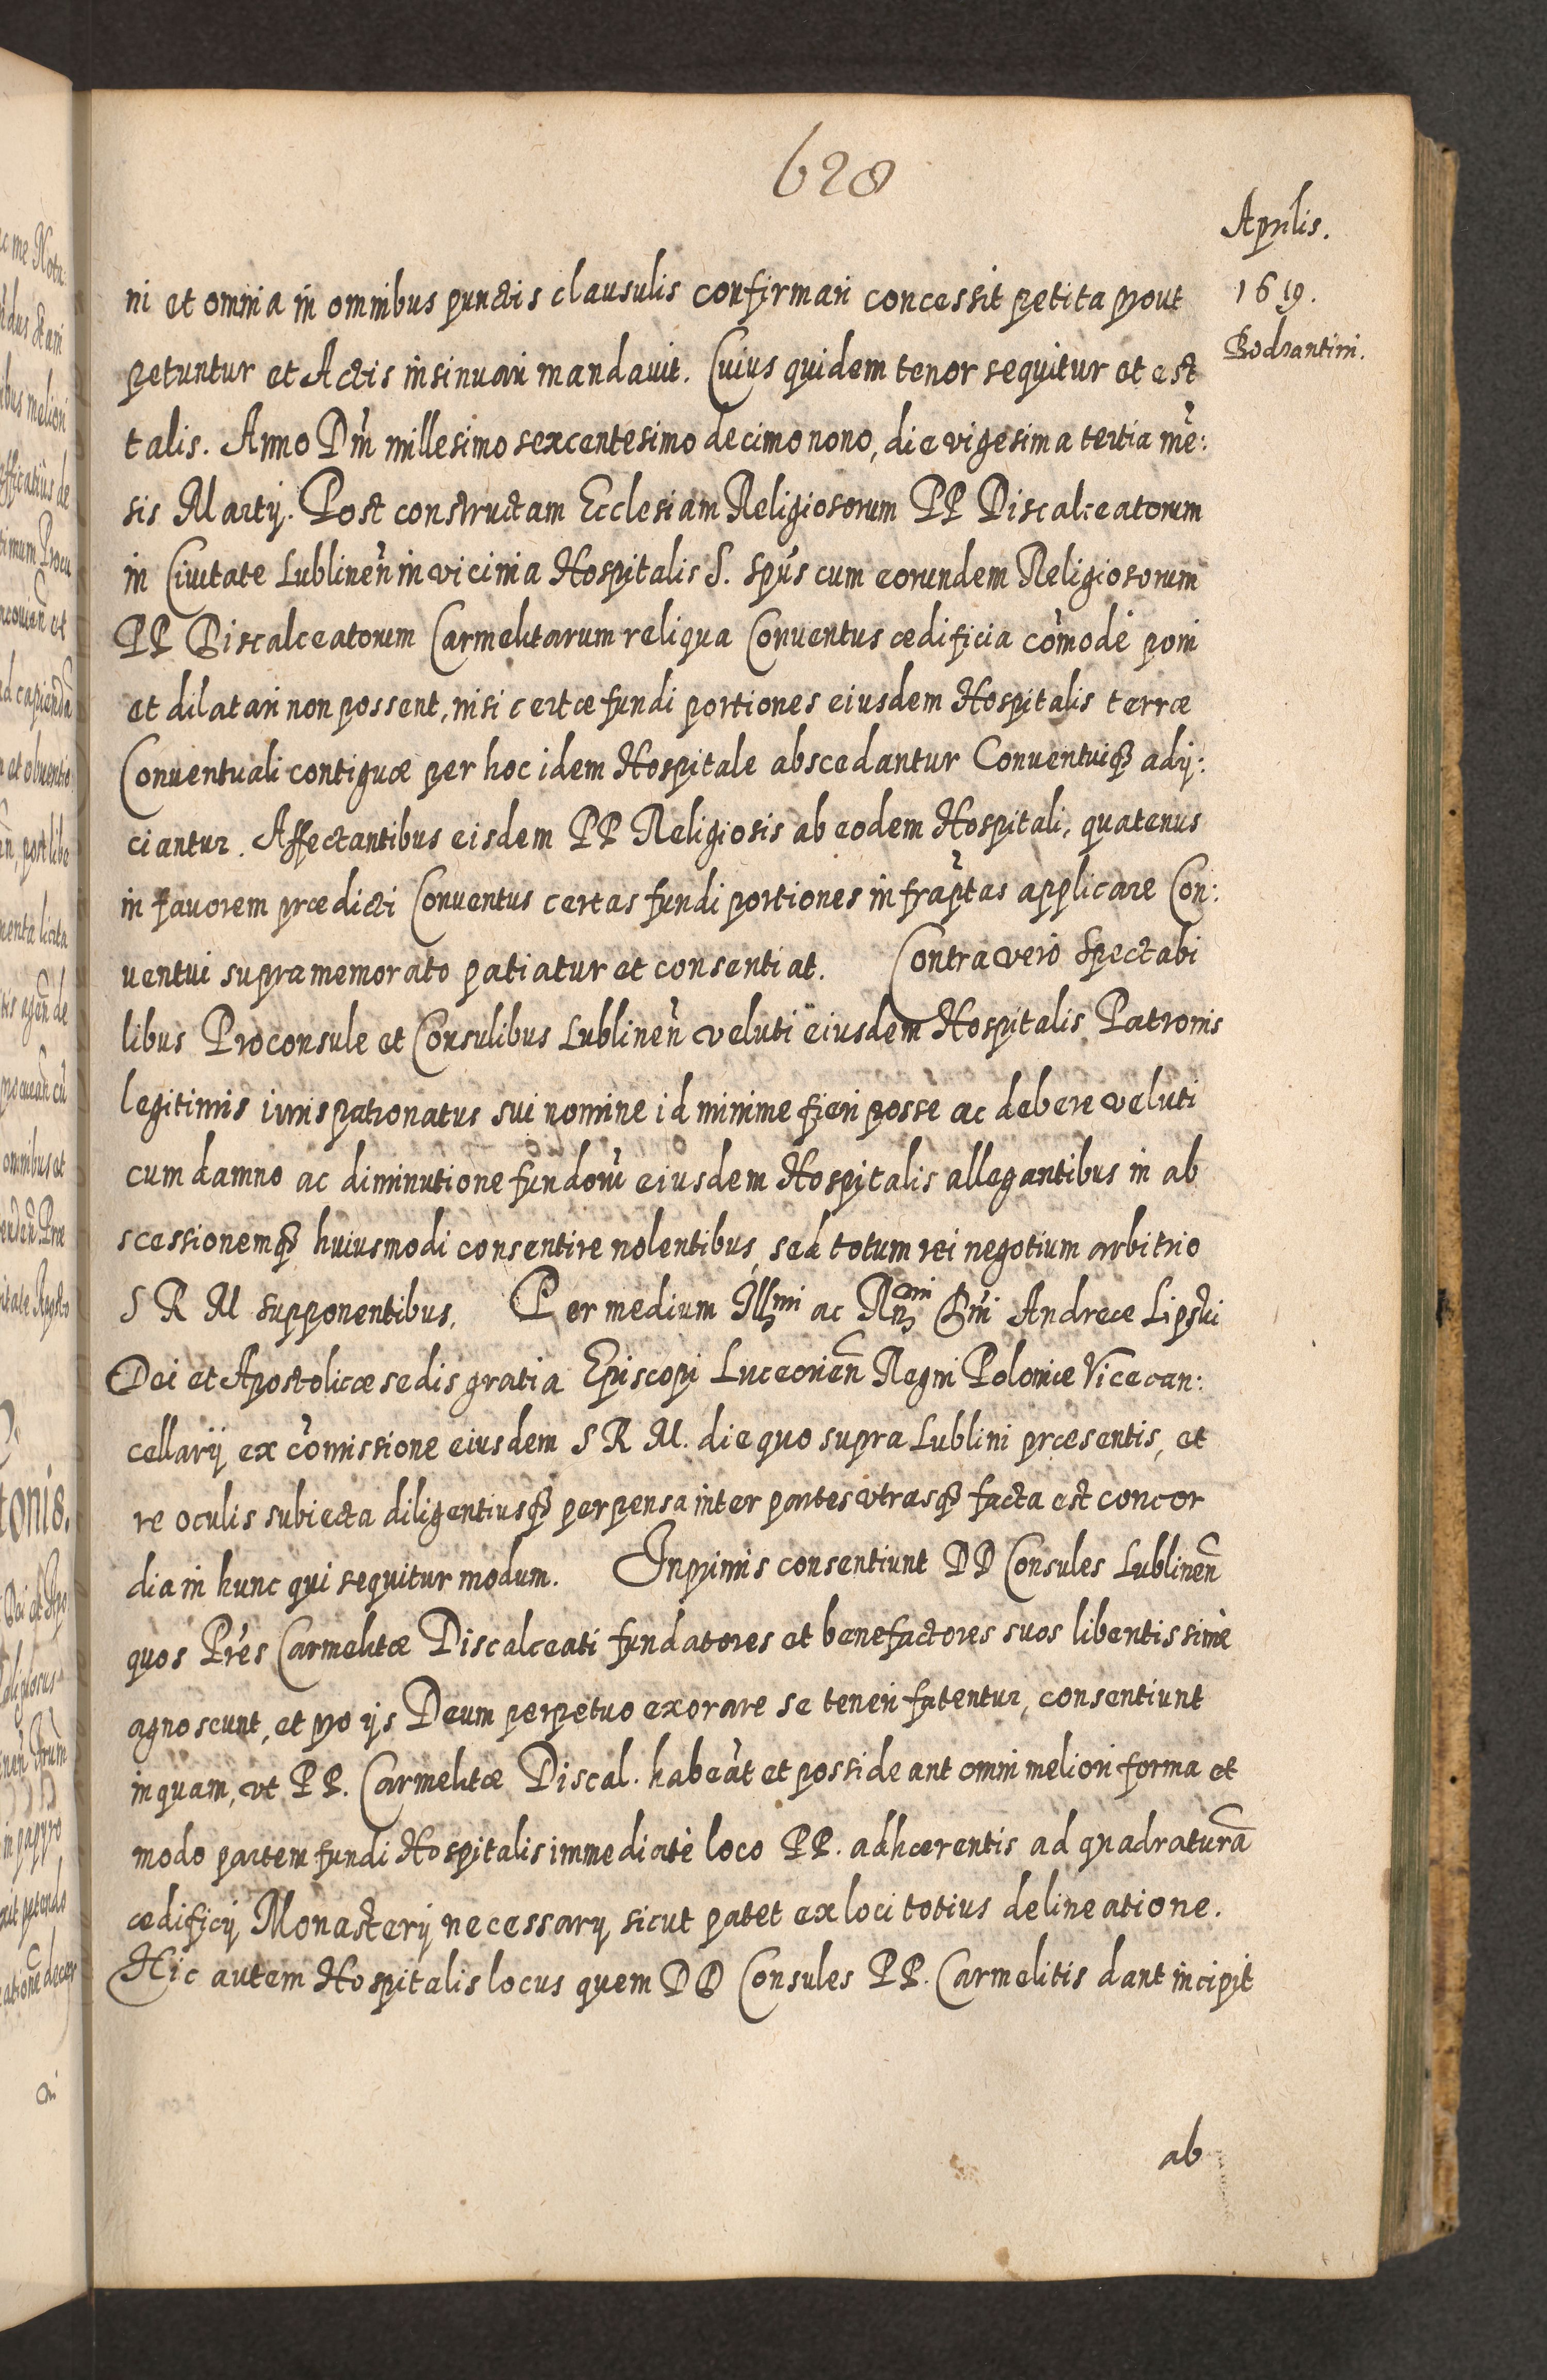 628
Aprilis.
1619.
Bodzantini.
ni et omnia in omnibus punctis clausulis confirmari concessit petita prout
petuntur et Actis insinuari mandavit. Cuius quidem tenor sequitur et est
talis. Anno Dni millesimo sexcentesimo decimo nono, die vigesima tertia mē:
sis Martij. Post constructam Ecclesiam Religiosorum PP Discalceatorum
in Civitate Lublineñ in vicinia Hospitalis S. Spus cum eorundem Religiosorum
PP Discalceatorum Carmelitarum reliqua Conuentus ædificia cōmodè poni
et dilatari non possent, nisi certæ fundi portiones eiusdem Hospitalis terræ
Conuentuali contiguæ per hoc idem Hospitale abscedantur Conuentuiq₃ adij:
ciantur. Affectantibus eisdem PP Religiosis ab eodem Hospitali, quatenus
in favorem prædicti Conuentus certas fundi portiones infraptas applicare Con:
uentui supramemorato patiatur et consentiat. Contra verò Spectabi
libus Proconsule et Consulibus Lublineñ veluti eiusdem Hospitalis Patronis
legitimis iuris patronatus sui nomine id minime fieri posse ac debere veluti
cum damno ac diminutione fundorū eiusdem Hospitalis allegantibus in ab
scessionemq₃ huiusmodi consentire nolentibus, sed totum rei negotium arbitrio
S R M supponentibus. Per medium Illmi ac Rndi Dni Andreæ Lipski
Dei et Apostolicæ sedis gratia Episcopi Luceorień Regni Poloniæ Vicecan:
cellarij ex cōmissione eiusdem S R M. die quo supra Lublini præsentis, et
re oculis subiecta diligentiusq₃ perpensa inter partes vtrasq₃ facta est concor
dia in hunc qui sequitur modum. Inprimis consentiunt DD Consules Lublineñ
quos Pres Carmelitæ Discalceati fundatores et benefactores suos libentissimè
agnoscunt, et pro ijs Deum perpetuo exorare se teneri fatentur, consentiunt
inquam, vt PP. Carmelitæ Discal. habeāt et possideant omni meliori forma et
modo partem fundi Hospitalis immediatè loco PP. adhærentis ad quadraturā
ædificij Monasterij necessarij sicut patet ex loci totius delineatione.
Hic autem Hospitalis locus quem DD Consules PP. Carmelitis dant incipit
ab